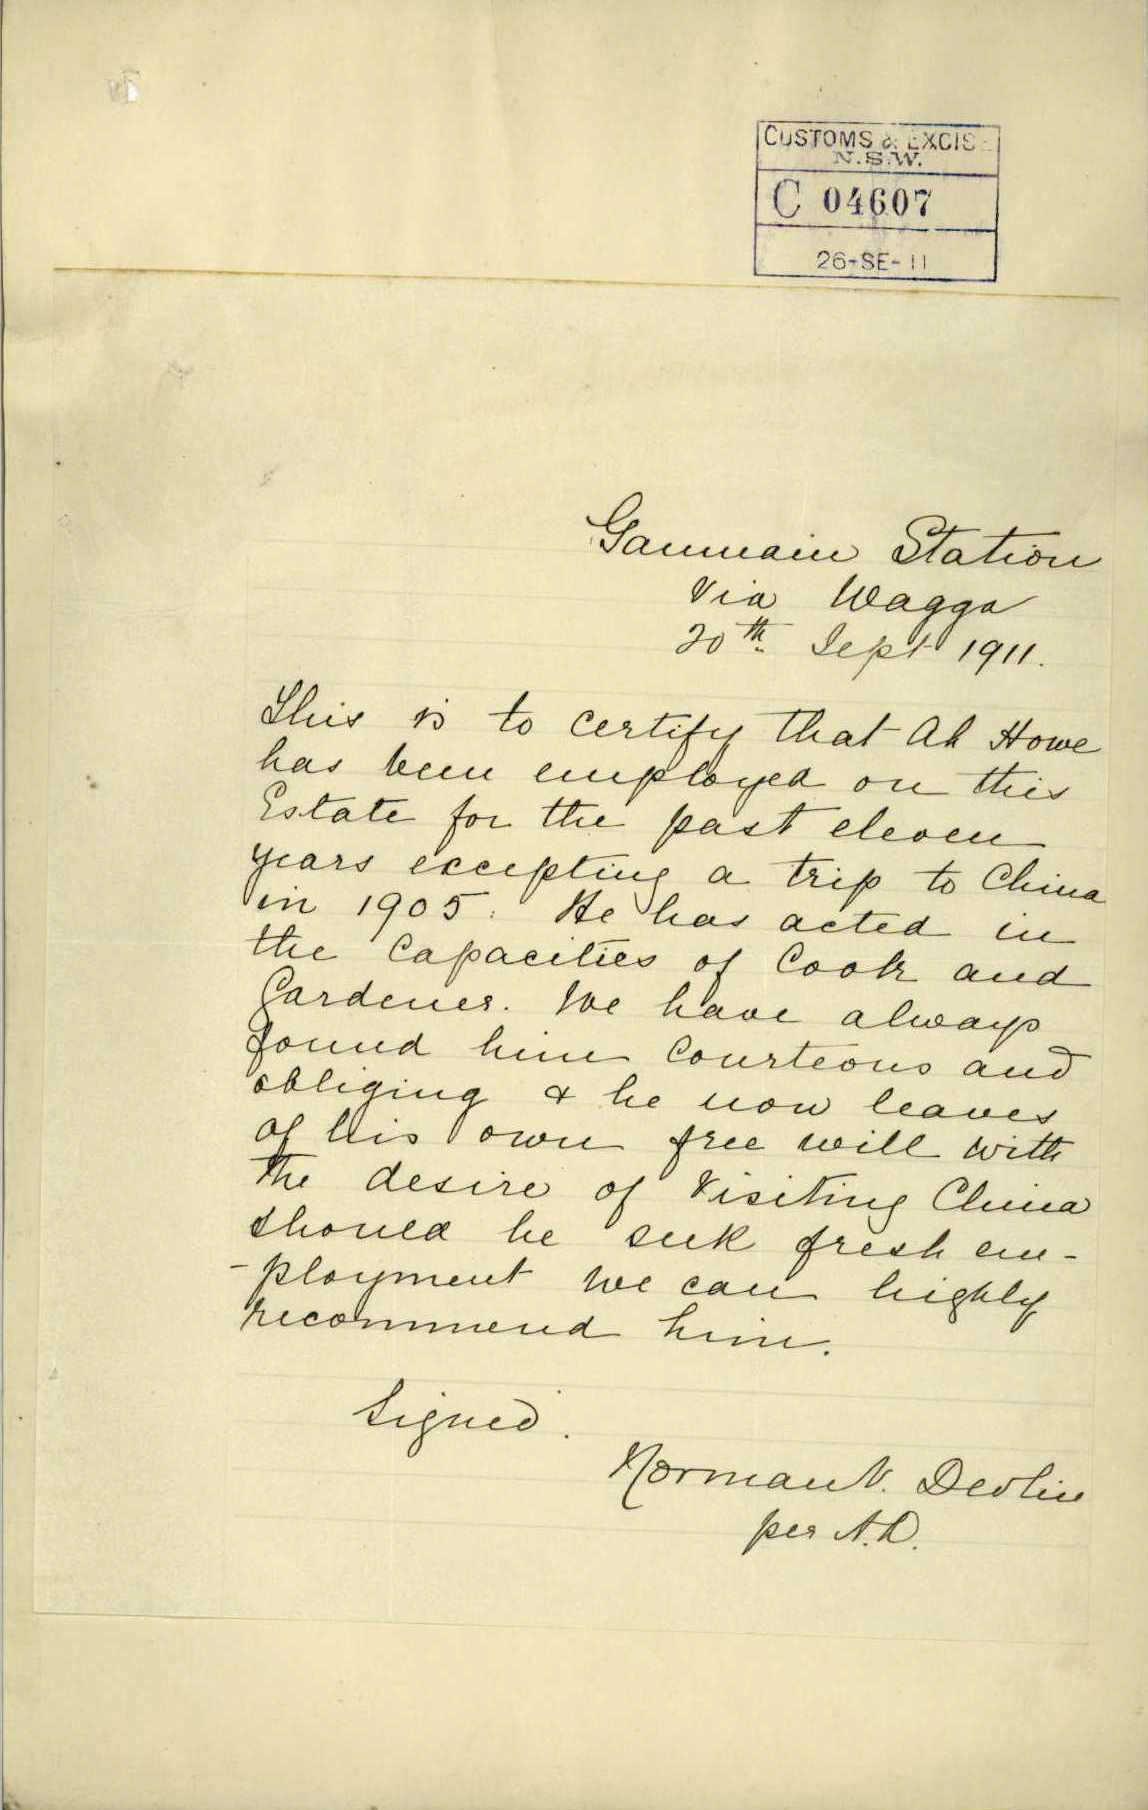 CUSTOMS & EXCISE
N.S.W.
C 04607
26-SE-11
Ganmain Station
Via Wagga
20th Sept 1911.
This is to certify that Ah Howe
has been employed on this
Estate for the past eleven
years excepting a trip to China
in 1905. He has acted in
the Capacities of Cook and
Gardener. We have always
found him Courteous and
obliging & he now leaves
of his own free will with
the desire of Visiting China
should he seek fresh em-
-ployment we can highly
recommend him.
Signed.
Norman N. Devlin
per A.D.